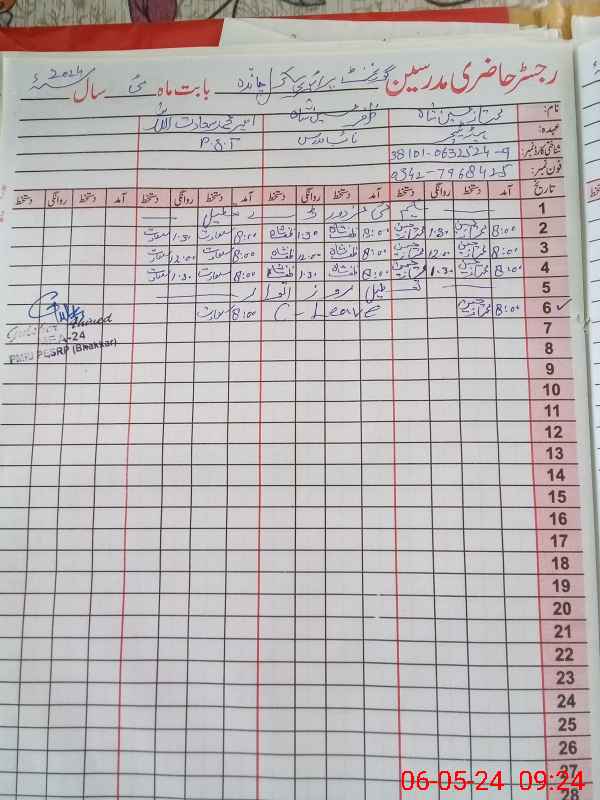 رجسٹر حاضری مدرسین گورنمنٹ پرائمری سکول چاندہ بابت ماہ مئی سال 2024ء
نام: حسین شاہ ظفر حسین شاہ امیر محمد سعادت اللہ
عہدہ: ہیڈ ٹیچر نائب مدرس P.S.T
شناختی کارڈ نمبر: 38101-0632524-9
فون نمبر:
تاریخ آمد دستخط روانگی دستخط آمد دستخط روانگی دستخط آمد دستخط روانگی دستخط آمد دستخط روانگی دستخط
1 یکم مئی مزدور ڈے تعطیل
2 8:00 1:30 8:00 ظفر شاہ 1:30 ظفر شاہ 8:00 سعادت 1:30 سعادت
3 8:00 12:00 8:00 ظفر شاہ 12:00 ظفر شاہ 8:00 سعادت 12:00 سعادت
4 8:00 1:30 8:00 ظفر شاہ 1:30 ظفر شاہ 8:00 سعادت 1:30 سعادت
5 تعطیل بروز اتوار
6 ✓ 8:00 C-Leave 8:00 سعادت
7
8
9
10
11
12
13
14
15
16
17
18
19
20
21
22
23
24
25
26
27
28
Ahmed
-24
PESRP (Bhakkar)
06-05-24 09:24